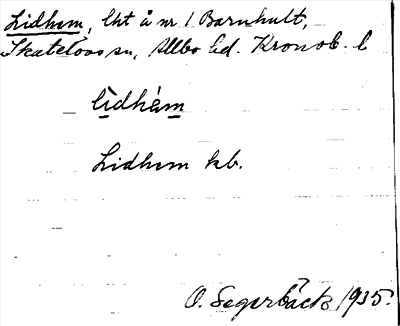 Lidhem, lht å nr. 1. Barnhult,
Skatelövs sn, Allbo hd. Kronob. l
lìdhàm
Lidhem kb.
O. Segerbäck 1935.